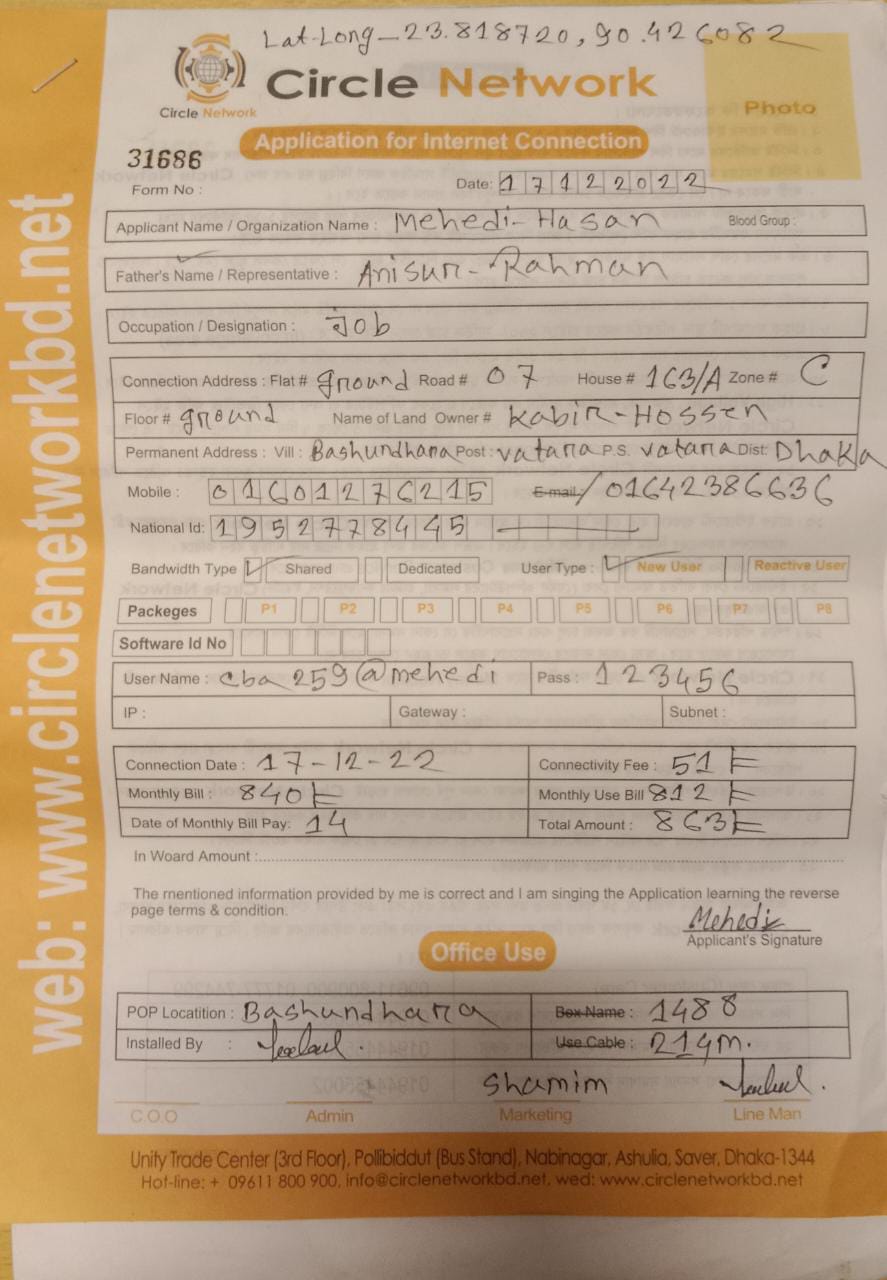 Lat-Long-23.818720, 90.426082
Circle Network
Circle Network
Photo
Application for Internet Connection
31686
Form No :
Date: 17122022
Applicant Name / Organization Name : Mehedi-Hasan Blood Group :
Father's Name / Representative : Anisur-Rahman
Occupation / Designation : Job
Connection Address : Flat # ground Road # 07 House # 163/A Zone # C
Floor # ground Name of Land Owner # Kabir-Hossen
Permanent Address : Vill : Bashundhara Post : vatara P.S. vatara Dist: Dhaka
Mobile : 01601276215 E-mail / 01642386636
National Id: 1952778445
Bandwidth Type Shared Dedicated User Type : New User Reactive User
Packeges P1 P2 P3 P4 P5 P6 P7 P8
Software Id No
User Name : cba259@mehedi Pass : 123456
IP : Gateway : Subnet :
Connection Date : 17-12-22 Connectivity Fee : 51
Monthly Bill : 840 Monthly Use Bill 812
Date of Monthly Bill Pay: 14 Total Amount : 863
In Woard Amount :
The mentioned information provided by me is correct and I am singing the Application learning the reverse
page terms & condition.
Mehedi
Applicant's Signature
Office Use
POP Locatition : Bashundhara Box Name : 1488
Installed By : Use Cable : 214m.
Shamim
C.O.O Admin Marketing Line Man
Unity Trade Center (3rd Floor), Pollibiddut (Bus Stand), Nabinagar, Ashulia, Saver, Dhaka-1344
Hot-line: + 09611 800 900, info@circlenetworkbd.net, wed: www.circlenetworkbd.net
web: www.circlenetworkbd.net